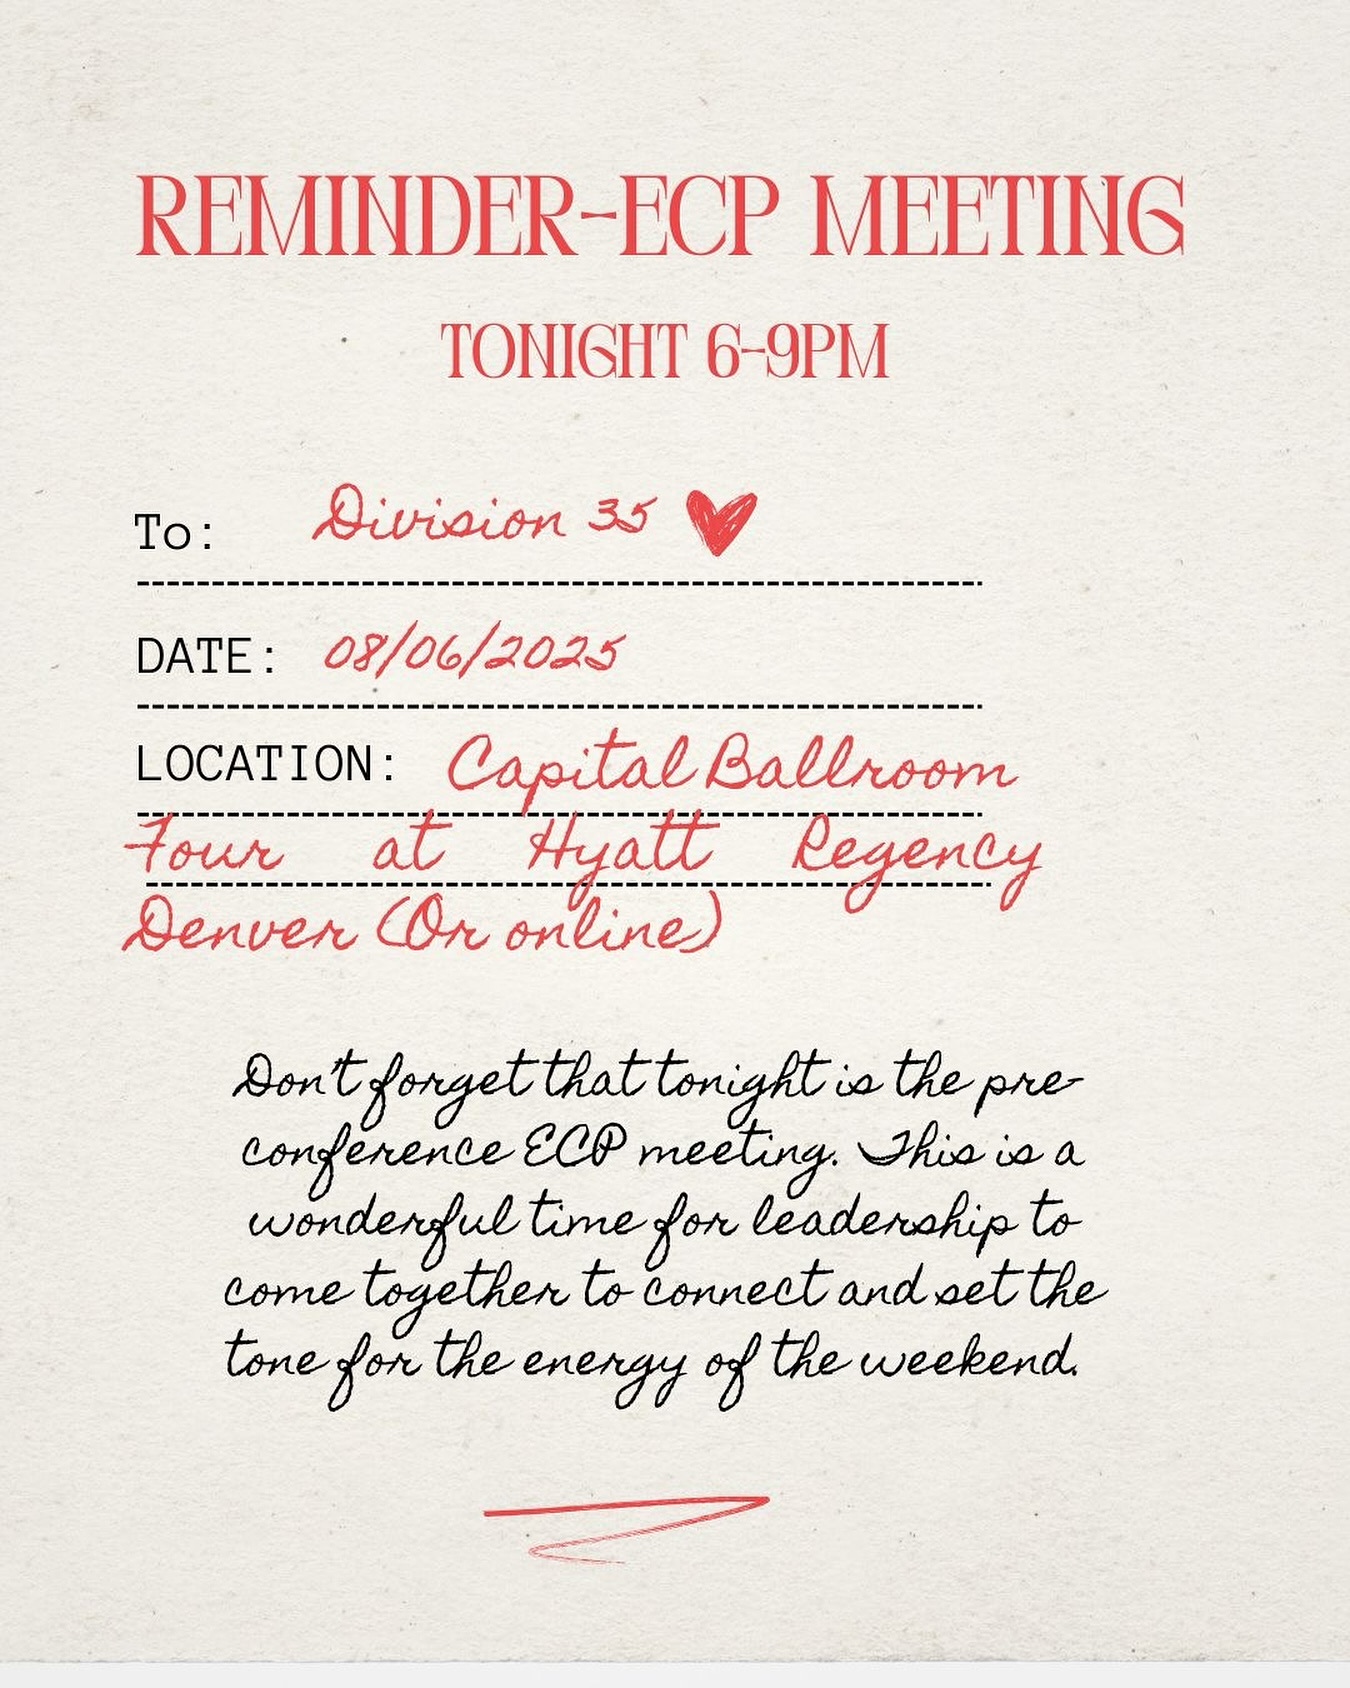 REMINDER-ECP MEETING
TONIGHT 6-9PM
To: Division 35
DATE: 08/06/2025
LOCATION: Capital Ballroom
Four at Hyatt Regency
Denver (Or online)
Don't forget that tonight is the pre-
conference ECP meeting. This is a
wonderful time for leadership to
come together to connect and set the
tone for the energy of the weekend.